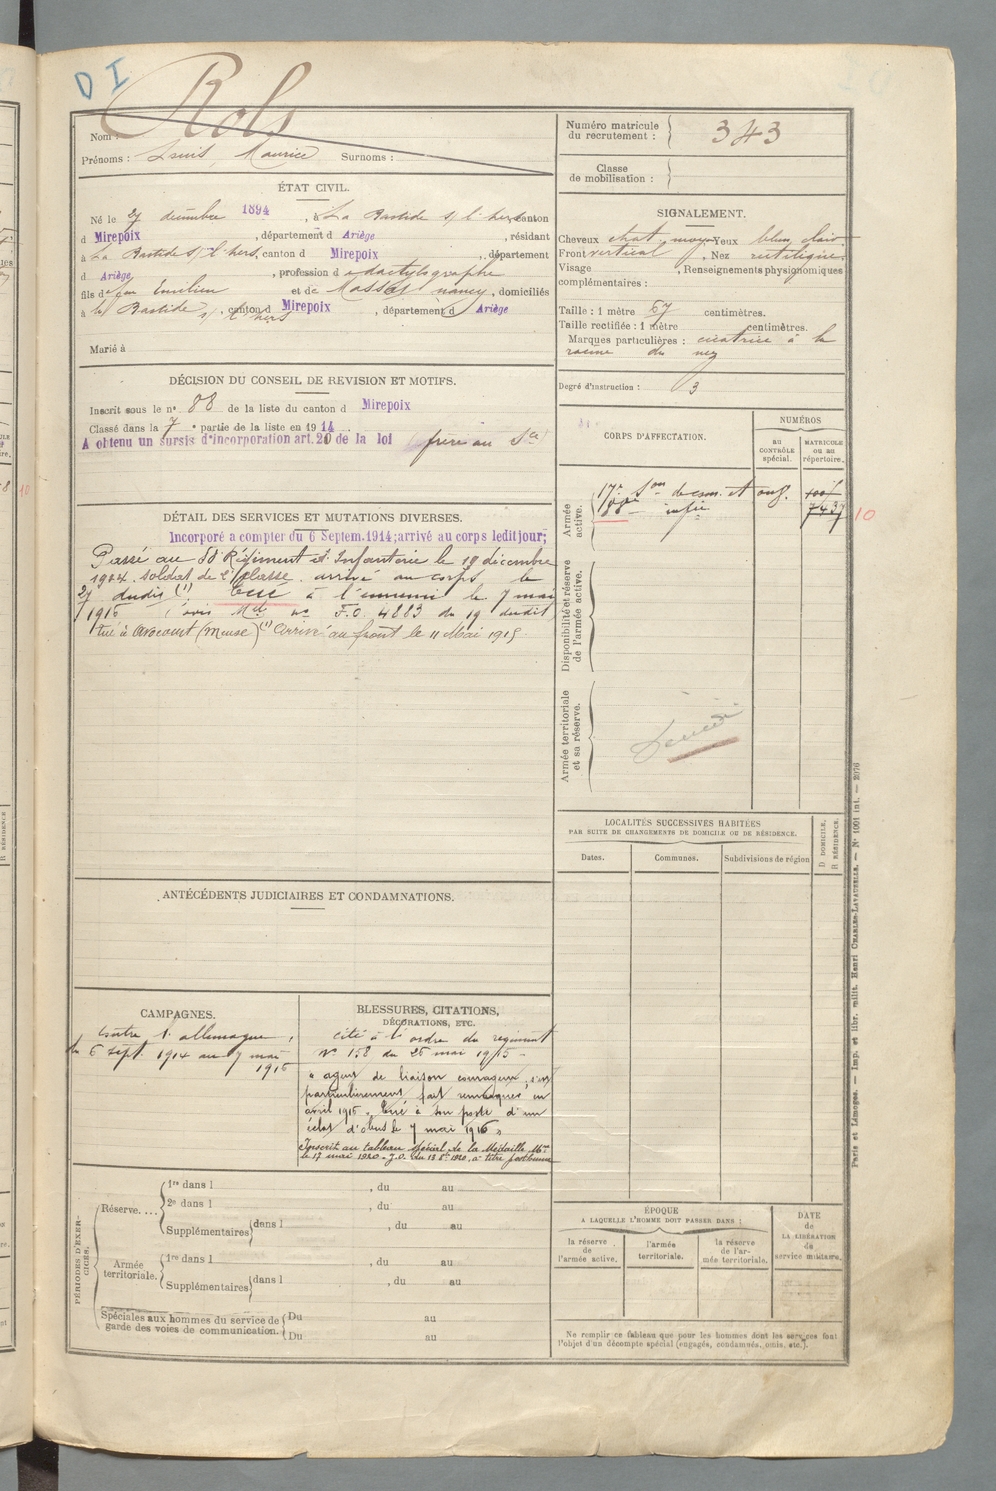 D I
Nom : Rols
Prénoms : Louis, Maurice Surnoms :
ÉTAT CIVIL.
Né le 27 décembre 1894, à La Bastide s/ l'hers canton
d Mirepoix, département d Ariège, résidant
à La Bastide s/ l'hers, canton d Mirepoix, département
d Ariège, profession de dactylographe
fils de feu Emilien et de Nancy, domiciliés
à la Bastide s/ l'hers, canton d Mirepoix, département d Ariège
Marié à
DÉCISION DU CONSEIL DE REVISION ET MOTIFS.
Inscrit sous le n° 88 de la liste du canton d Mirepoix
Classé dans la 7e partie de la liste en 1914
A obtenu un sursis d'incorporation art. 20 de la loi frère au Sce
DÉTAIL DES SERVICES ET MUTATIONS DIVERSES.
Incorporé a compter du 6 Septem. 1914; arrivé au corps ledit jour;
Passé au 88e Régiment d'Infanterie le 19 décembre
1914. soldat de 2e classe. arrivé au corps le
27 dudit (1) Tué à l'ennemi le 7 mai
1916 (avis Mel no F.O. 4883 du 19 dudit)
tué à Avocourt (Meuse) (1) Arrivé au front le 11 Mai 1915
ANTÉCÉDENTS JUDICIAIRES ET CONDAMNATIONS.
CAMPAGNES.
Contre l'allemagne,
du 6 sept. 1914 au 7 mai
1916
BLESSURES, CITATIONS,
DÉCORATIONS, ETC.
Cité à l'ordre du régiment
N° 158 du 26 mai
"agent de liaison courageux, s'est
particulièrement fait remarquer en
avril 1916. Tué à son poste d'un
éclat d'obus le 7 mai 1916"
Inscrit au tableau spécial de la Médaille Mre
le 17 mai 1920. J.O. du 1920. à titre posthume
PÉRIODES D'EXERCICES.
Réserve.... 1re dans l , du au
2e dans l , du au
Supplémentaires dans l , du au
Armée territoriale. 1re dans l , du au
Supplémentaires dans l , du au
Spéciales aux hommes du service de garde des voies de communication. Du au
Du au
Numéro matricule du recrutement : 343
Classe de mobilisation :
SIGNALEMENT.
Cheveux chat. moy. Yeux bleu clair
Front vertical, Nez rectiligne
Visage , Renseignements physionomiques
complémentaires :
Taille : 1 mètre 67 centimètres.
Taille rectifiée : 1 mètre centimètres.
Marques particulières : cicatrice à la
racine du nez
Degré d'instruction : 3
CORPS D'AFFECTATION.
NUMÉROS
au CONTRÔLE spécial.
MATRICULE ou au répertoire.
Armée active.
17e Son de com. et
88e infie 7437 10
Disponibilité et réserve de l'armée active.
Armée territoriale et sa réserve.
LOCALITÉS SUCCESSIVES HABITÉES
PAR SUITE DE CHANGEMENTS DE DOMICILE OU DE RÉSIDENCE.
Dates. Communes. Subdivisions de région
D DOMICILE, R RÉSIDENCE.
ÉPOQUE
A LAQUELLE L'HOMME DOIT PASSER DANS :
la réserve de l'armée active.
l'armée territoriale.
la réserve de l'armée territoriale.
DATE de LA LIBÉRATION du service militaire.
Ne remplir ce tableau que pour les hommes dont les services font
l'objet d'un décompte spécial (engagés, condamnés, omis, etc.).
Paris et Limoges. — Imp. et libr. milit. Henri CHARLES-LAVAUZELLE. — N° 1001 int. — 2076